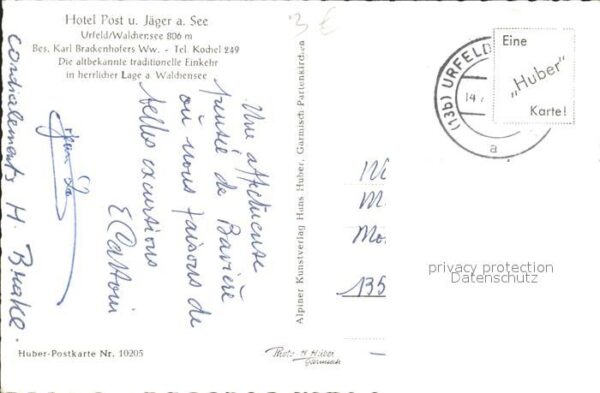 Hotel Post u. Jäger a. See
Urfeld/Walchensee 806 m
Bes. Karl Brackenhofers Ww. - Tel. Kochel 249
Die altbekannte traditionelle Einkehr
in herrlicher Lage a Walchensee
3 €
Une affectueuse
pensée de Bavière
où nous faisons de
belles excursions
Cordialements H. Brake.
Alpiner Kunstverlag Hans Huber, Garmisch-Partenkirchen
(13b) URFELD
14.
a
Eine
„Huber"
Karte!
M.
135
privacy protection
Datenschutz
Huber-Postkarte Nr. 10205
Photo H. Huber
Garmisch